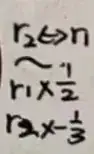 r₂⇔r₁
r₁×1/2
r₂×-1/3